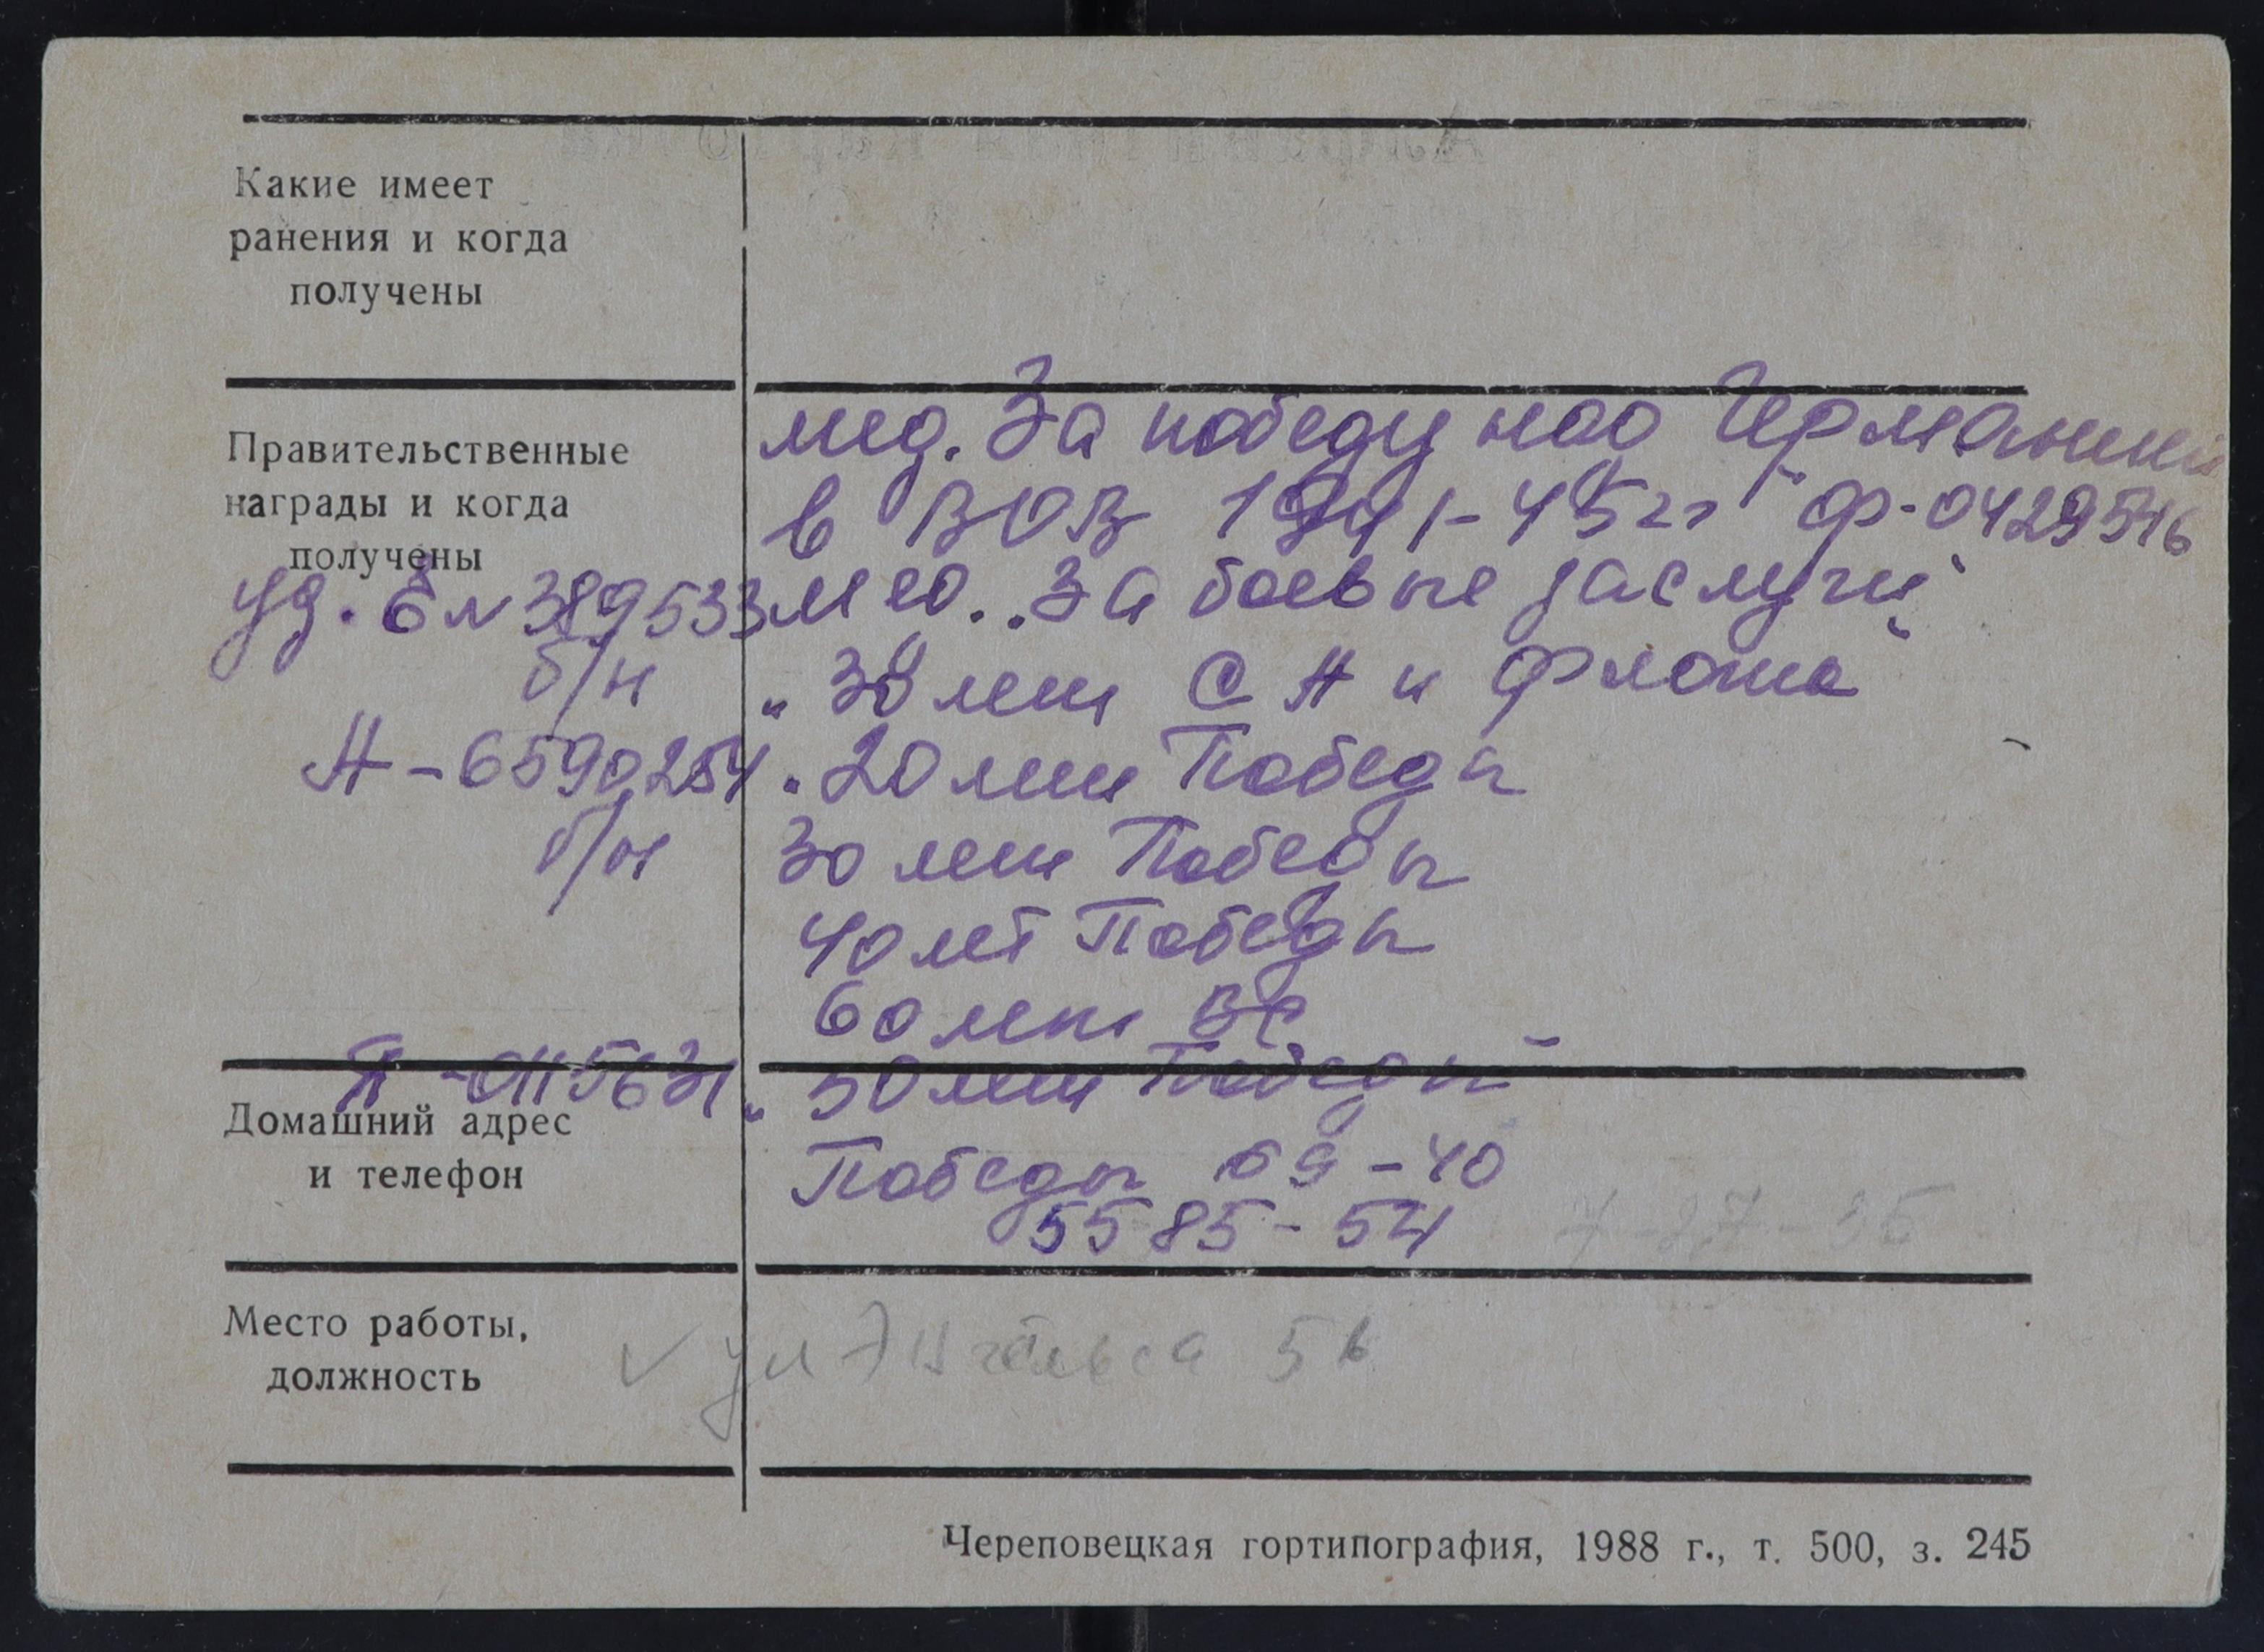 Какие имеет
ранения и когда
получены
Правительственные
награды и когда
получены
мед. За победу над Германией
в ВОВ 1941-45гг" Ф-0429546
уд. Б №389533 мед. „За боевые заслуги"
б/н „ 30 лет СА и Флота"
А-6590254 „ 20 лет Победы
б/н 30 лет Победы
40 лет Победы
60 лет ВС
„ 50 лет Победы"
Домашний адрес
и телефон
Победы 69-40
5585-54
Место работы,
должность
ул Энгельса 5
Череповецкая гортипография, 1988 г., т. 500, з. 245